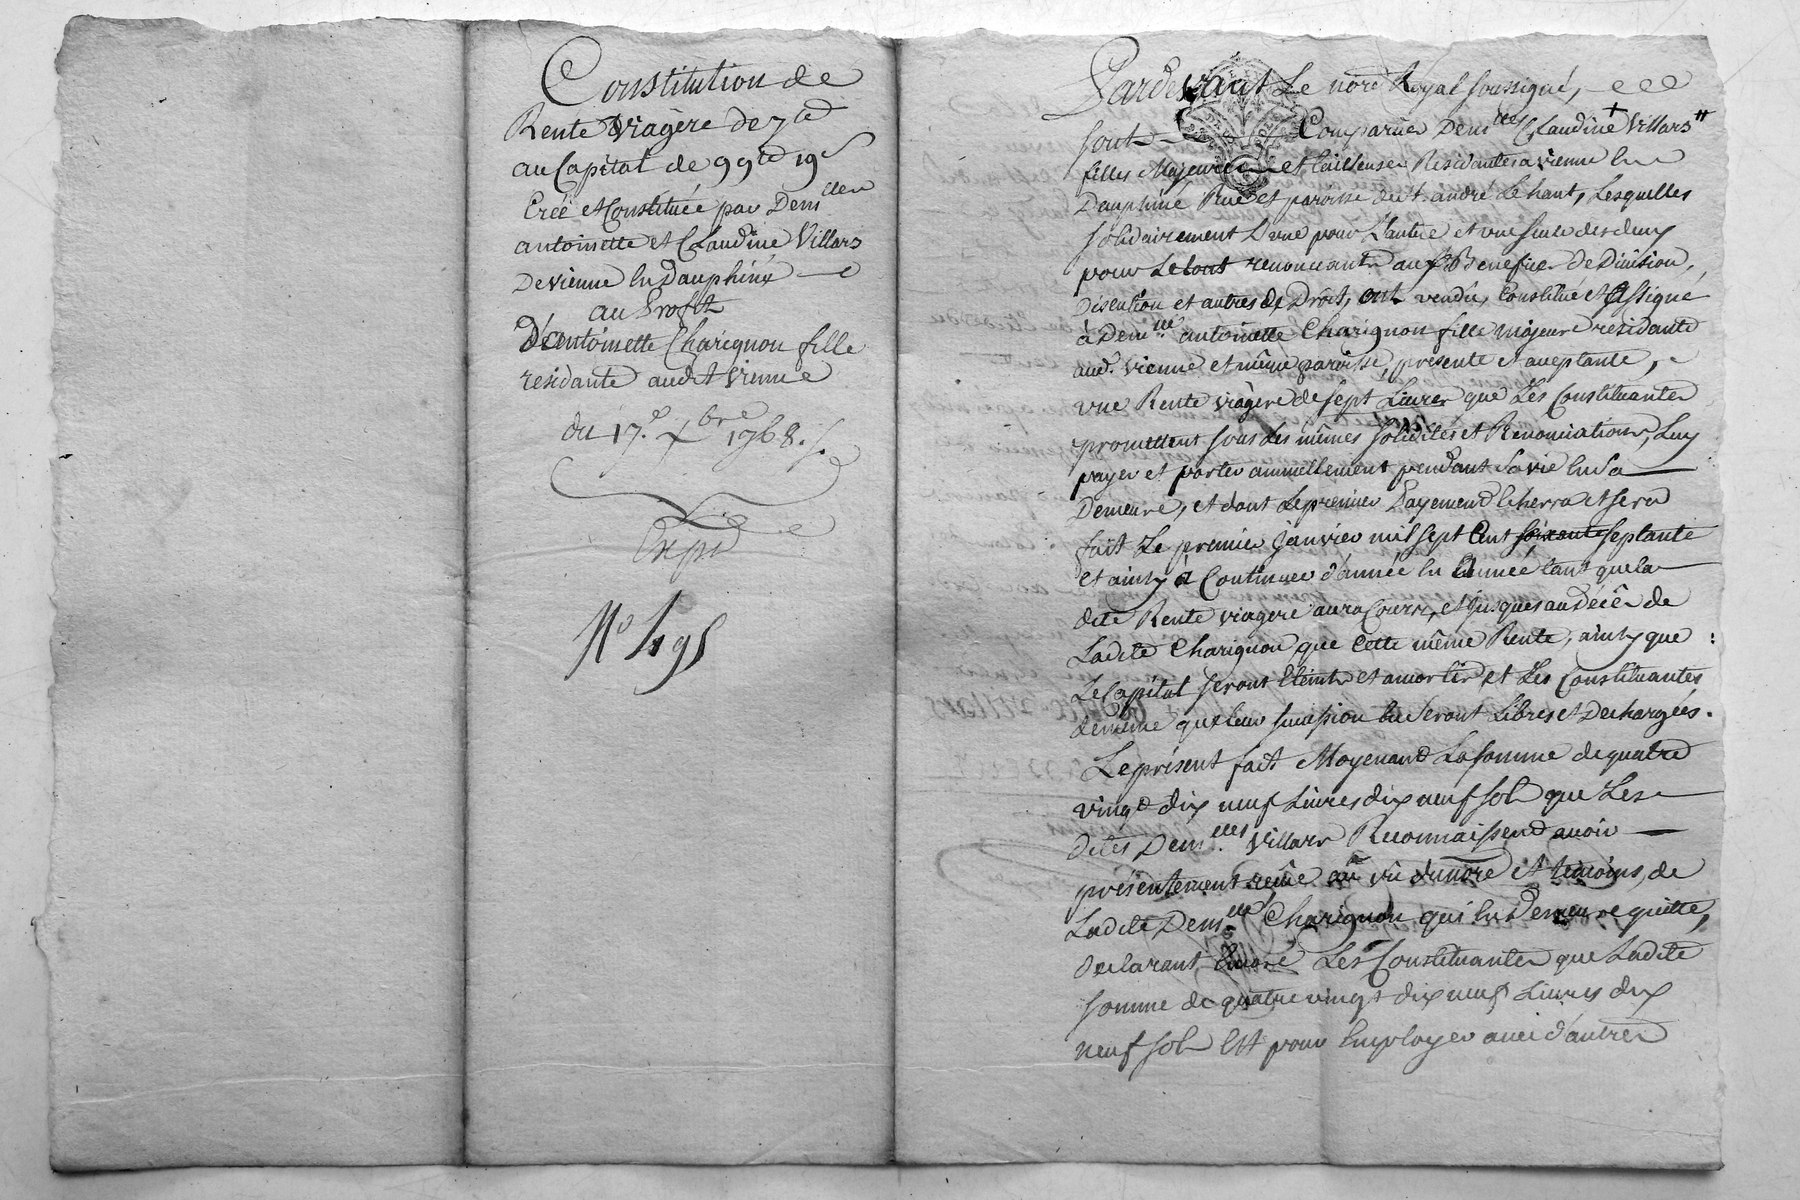 Constitution de
Rente viagère de 7 ₶
au Capital de 99 ₶ 19 s
Créé et Constituée par Dem.lles
antoinette et Claudine Villars
de vienne en dauphiné
au Profit
D'antoinette Charignon fille
residante audit vienne
du 17.e Xbre 1768 ./.
Expé
N° 495
Pardevant Le nore Royal soussigné,
sont Comparües Demlles Claudine + Villars #
filles Majeures et tailleuses Residantes a vienne En
Dauphiné Rue et paroisse de st andré Le haut, Lesquelles
solidairement L'une pour L'autre et une seule des deux
pour Le tout renonçant aux Benefices de Division,
Discution et autres de Droit, ont vendu, Constitué et Assigné
à Demlle antoinette Charignon fille majeure residante
aud. vienne et même paroisse, presente et aceptante,
une Rente viagère de sept Livres que Les Constituantes
promettent sous les mêmes solidités et Renonciations, Luy
payer et porter annuellement pendant sa vie En sa
Demeure, et dont Le premier Payement Echerra et sera
fait Le premier janvier mil sept Cent soixante septante
et ainsy à Continuer d'année En Année tant que la
dite Rente viagere aura Cours, et jusques au décès de
Ladite Charignon que Cette même Rente, ainsy que :
Le Capital seront Eteints et amortis, et Les Constituantes
de même que leur succession En seront Libres et Dechargées.
Le présent fait Moyenand La somme de quatre
vingt dix neuf Livres dix neuf sols que Les
dites Demelles Villars Reconnaissend avoir
présentement reçüe au vû du nore et témoins, de
Ladite Demelle Charignon qui En Demeure quitte,
declarant Encore Les Constituantes que Ladite
somme de quatre vingt dix neuf Livres dix
neuf sols Est pour Employer avec d'autres